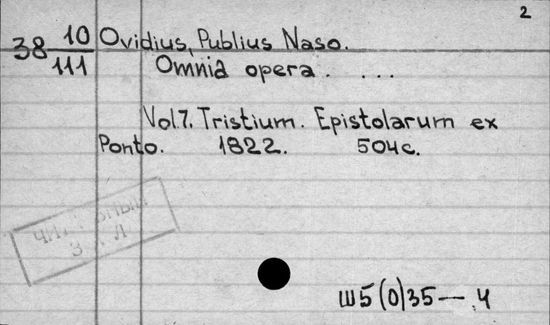 2
38 10/111 Ovidius, Publius Naso.
Omnia opera. ...
Vol.7. Tristium. Epistolarum ex
Ponto. 1822. 504с.
ЧИТАЛЬНЫЙ
ЗАЛ
Ш5(0)35—,4